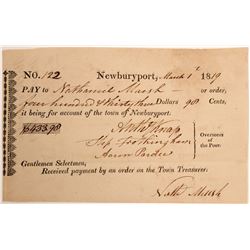 NO. 122 Newburyport, March 1 1819
PAY to Nathaniel Marsh or order,
four hundred & thirty three Dollars 98 Cents,
it being for account of the town of Newburyport.
$433.98
Overseers of the Poor.
Aaron Pardee
Gentlemen Selectmen,
Received payment of an order on the Town Treasurer:
Nath Marsh